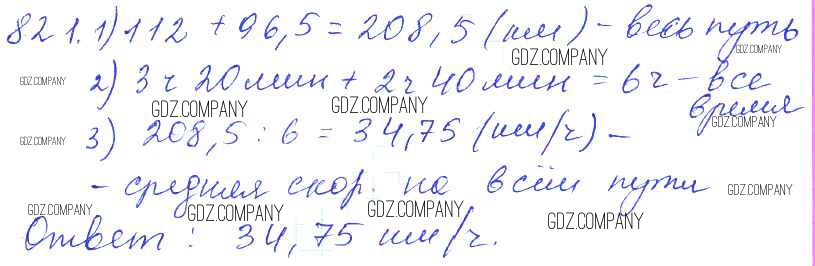 821. 1) 112 + 96,5 = 208,5 (км) – весь путь
GDZ.COMPANY GDZ.COMPANY
GDZ.COMPANY 2) 3 ч 20 мин + 2 ч 40 мин = 6 ч – все
время
GDZ.COMPANY GDZ.COMPANY GDZ.COMPANY
GDZ.COMPANY 3) 208,5 : 6 = 34,75 (км/ч) –
– средняя скор. на всём пути GDZ.COMPANY
GDZ.COMPANY GDZ.COMPANY GDZ.COMPANY GDZ.COMPANY
Ответ : 34,75 км/ч.